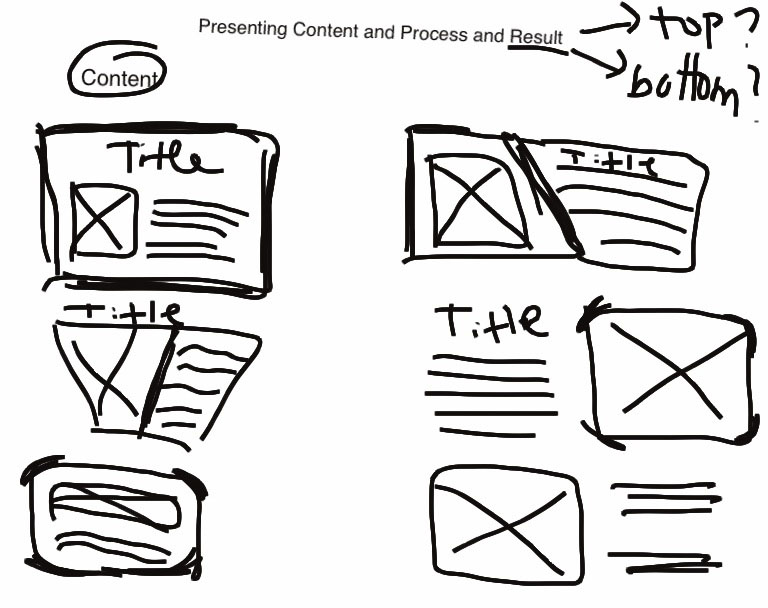 Presenting Content and Process and Result
top?
bottom?
Content
Title
Title
Title
Title